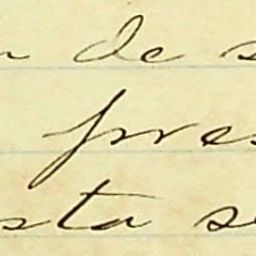 de s
pres
sta se